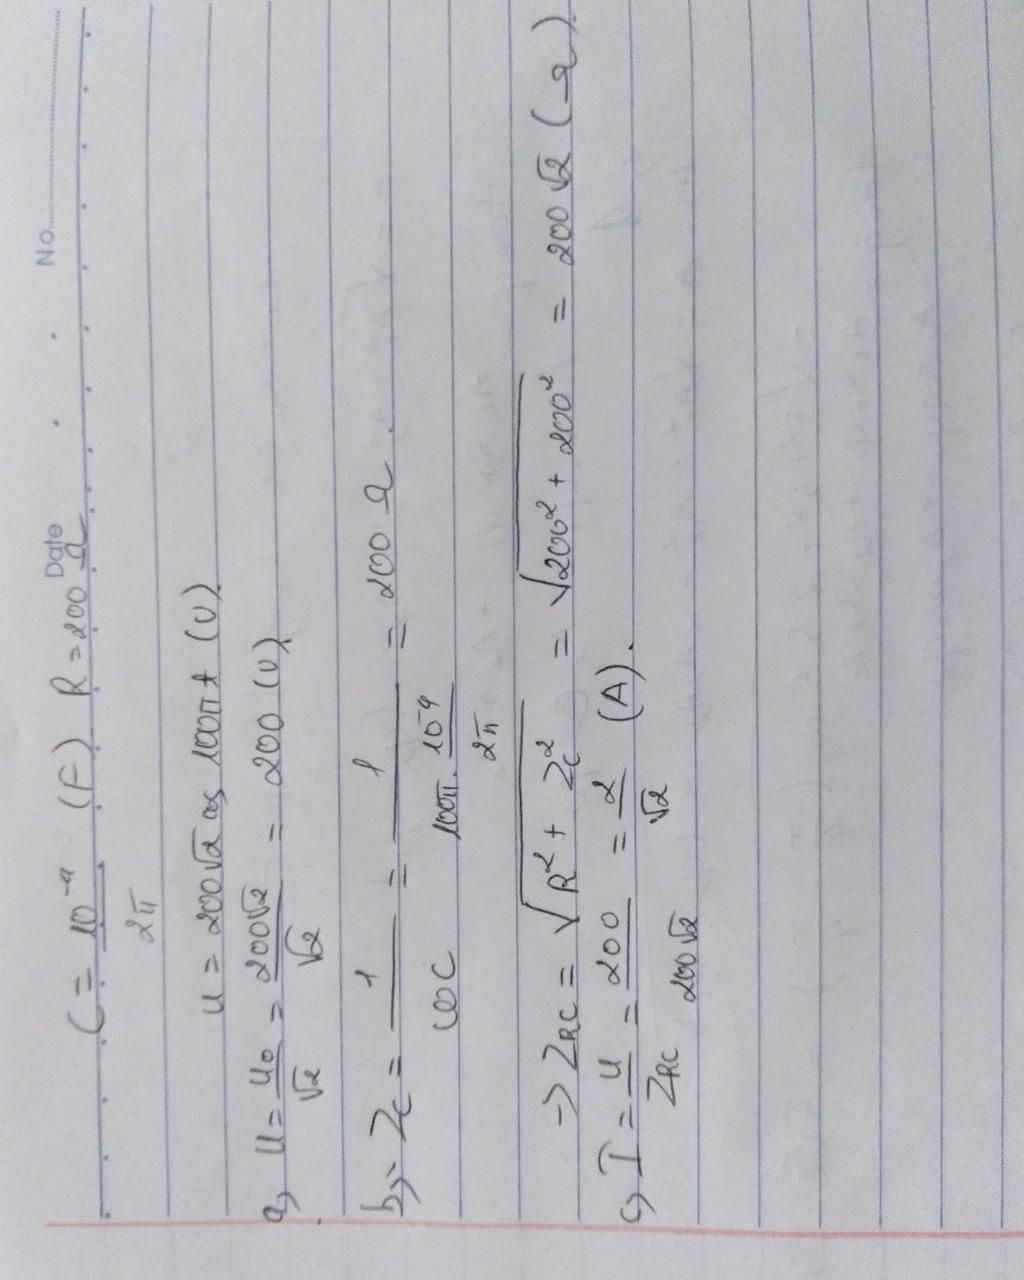 Date No.
C = 10⁻⁴/2π (F) R = 200 Ω
u = 200√2 cos 100πt (V)
a, U = U₀/√2 = 200√2/√2 = 200 (V)
b, Z_C = 1/ωC = 1/(100π . 10⁻⁴/2π) = 200 Ω.
-> Z_RC = √(R² + Z_C²) = √(200² + 200²) = 200√2 (Ω).
c, I = U/Z_RC = 200/200√2 = 2/√2 (A).